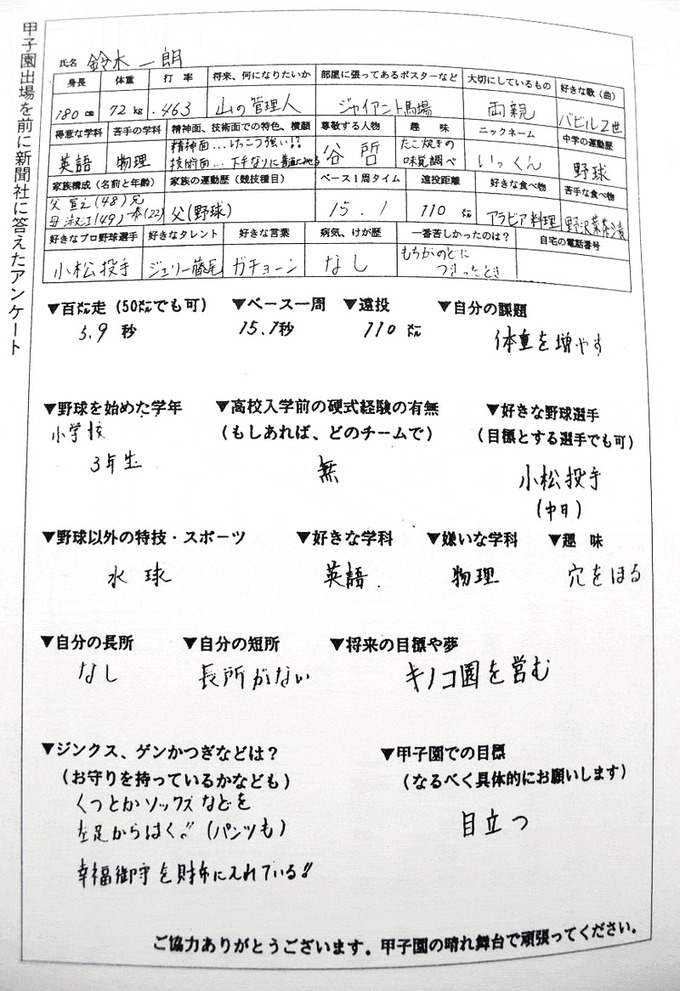 甲子園出場を前に新聞社に答えたアンケート
氏名 鈴木一朗
身長 体重 打率 将来、何になりたいか 部屋に張ってあるポスターなど 大切にしているもの 好きな歌(曲)
180cm 72kg .463 山の管理人 ジャイアント馬場 両親 バビル2世
得意な学科 苦手の学科 精神面、技術面での特色、横顔 尊敬する人物 趣味 ニックネーム 中学の運動歴
英語 物理 精神面…けっこう強い!! 谷 啓 たこ焼きの いっくん 野球
技術面…下手なりに 味覚調べ
家族構成(名前と年齢) 家族の運動歴(競技種目) ベース1周タイム 遠投距離 好きな食べ物 苦手な食べ物
父 宣之(48)兄 父(野球) 15.1 110㍍ アラビア料理 野沢菜茶漬
母 淑江(49) 一泰(22)
好きなプロ野球選手 好きなタレント 好きな言葉 病気、けが歴 一番苦しかったのは? 自宅の電話番号
小松投手 ジェリー藤尾 ガチョーン なし もちがのどに
つまったとき
▼百㍍走(50㍍でも可) ▼ベース一周 ▼遠投 ▼自分の課題
5.9秒 15.1秒 110㍍ 体重を増やす
▼野球を始めた学年 ▼高校入学前の硬式経験の有無 ▼好きな野球選手
小学校 (もしあれば、どのチームで) (目標とする選手でも可)
3年生 無 小松投手
(中日)
▼野球以外の特技・スポーツ ▼好きな学科 ▼嫌いな学科 ▼趣味
水球 英語. 物理 穴をほる
▼自分の長所 ▼自分の短所 ▼将来の目標や夢
なし 長所がない キノコ園を営む
▼ジンクス、ゲンかつぎなどは? ▼甲子園での目標
(お守りを持っているかなども) (なるべく具体的にお願いします)
くつとかソックスなどを
左足からはく!! (パンツも) 目立つ
幸福御守を財布に入れている!!
ご協力ありがとうございます。甲子園の晴れ舞台で頑張ってください。